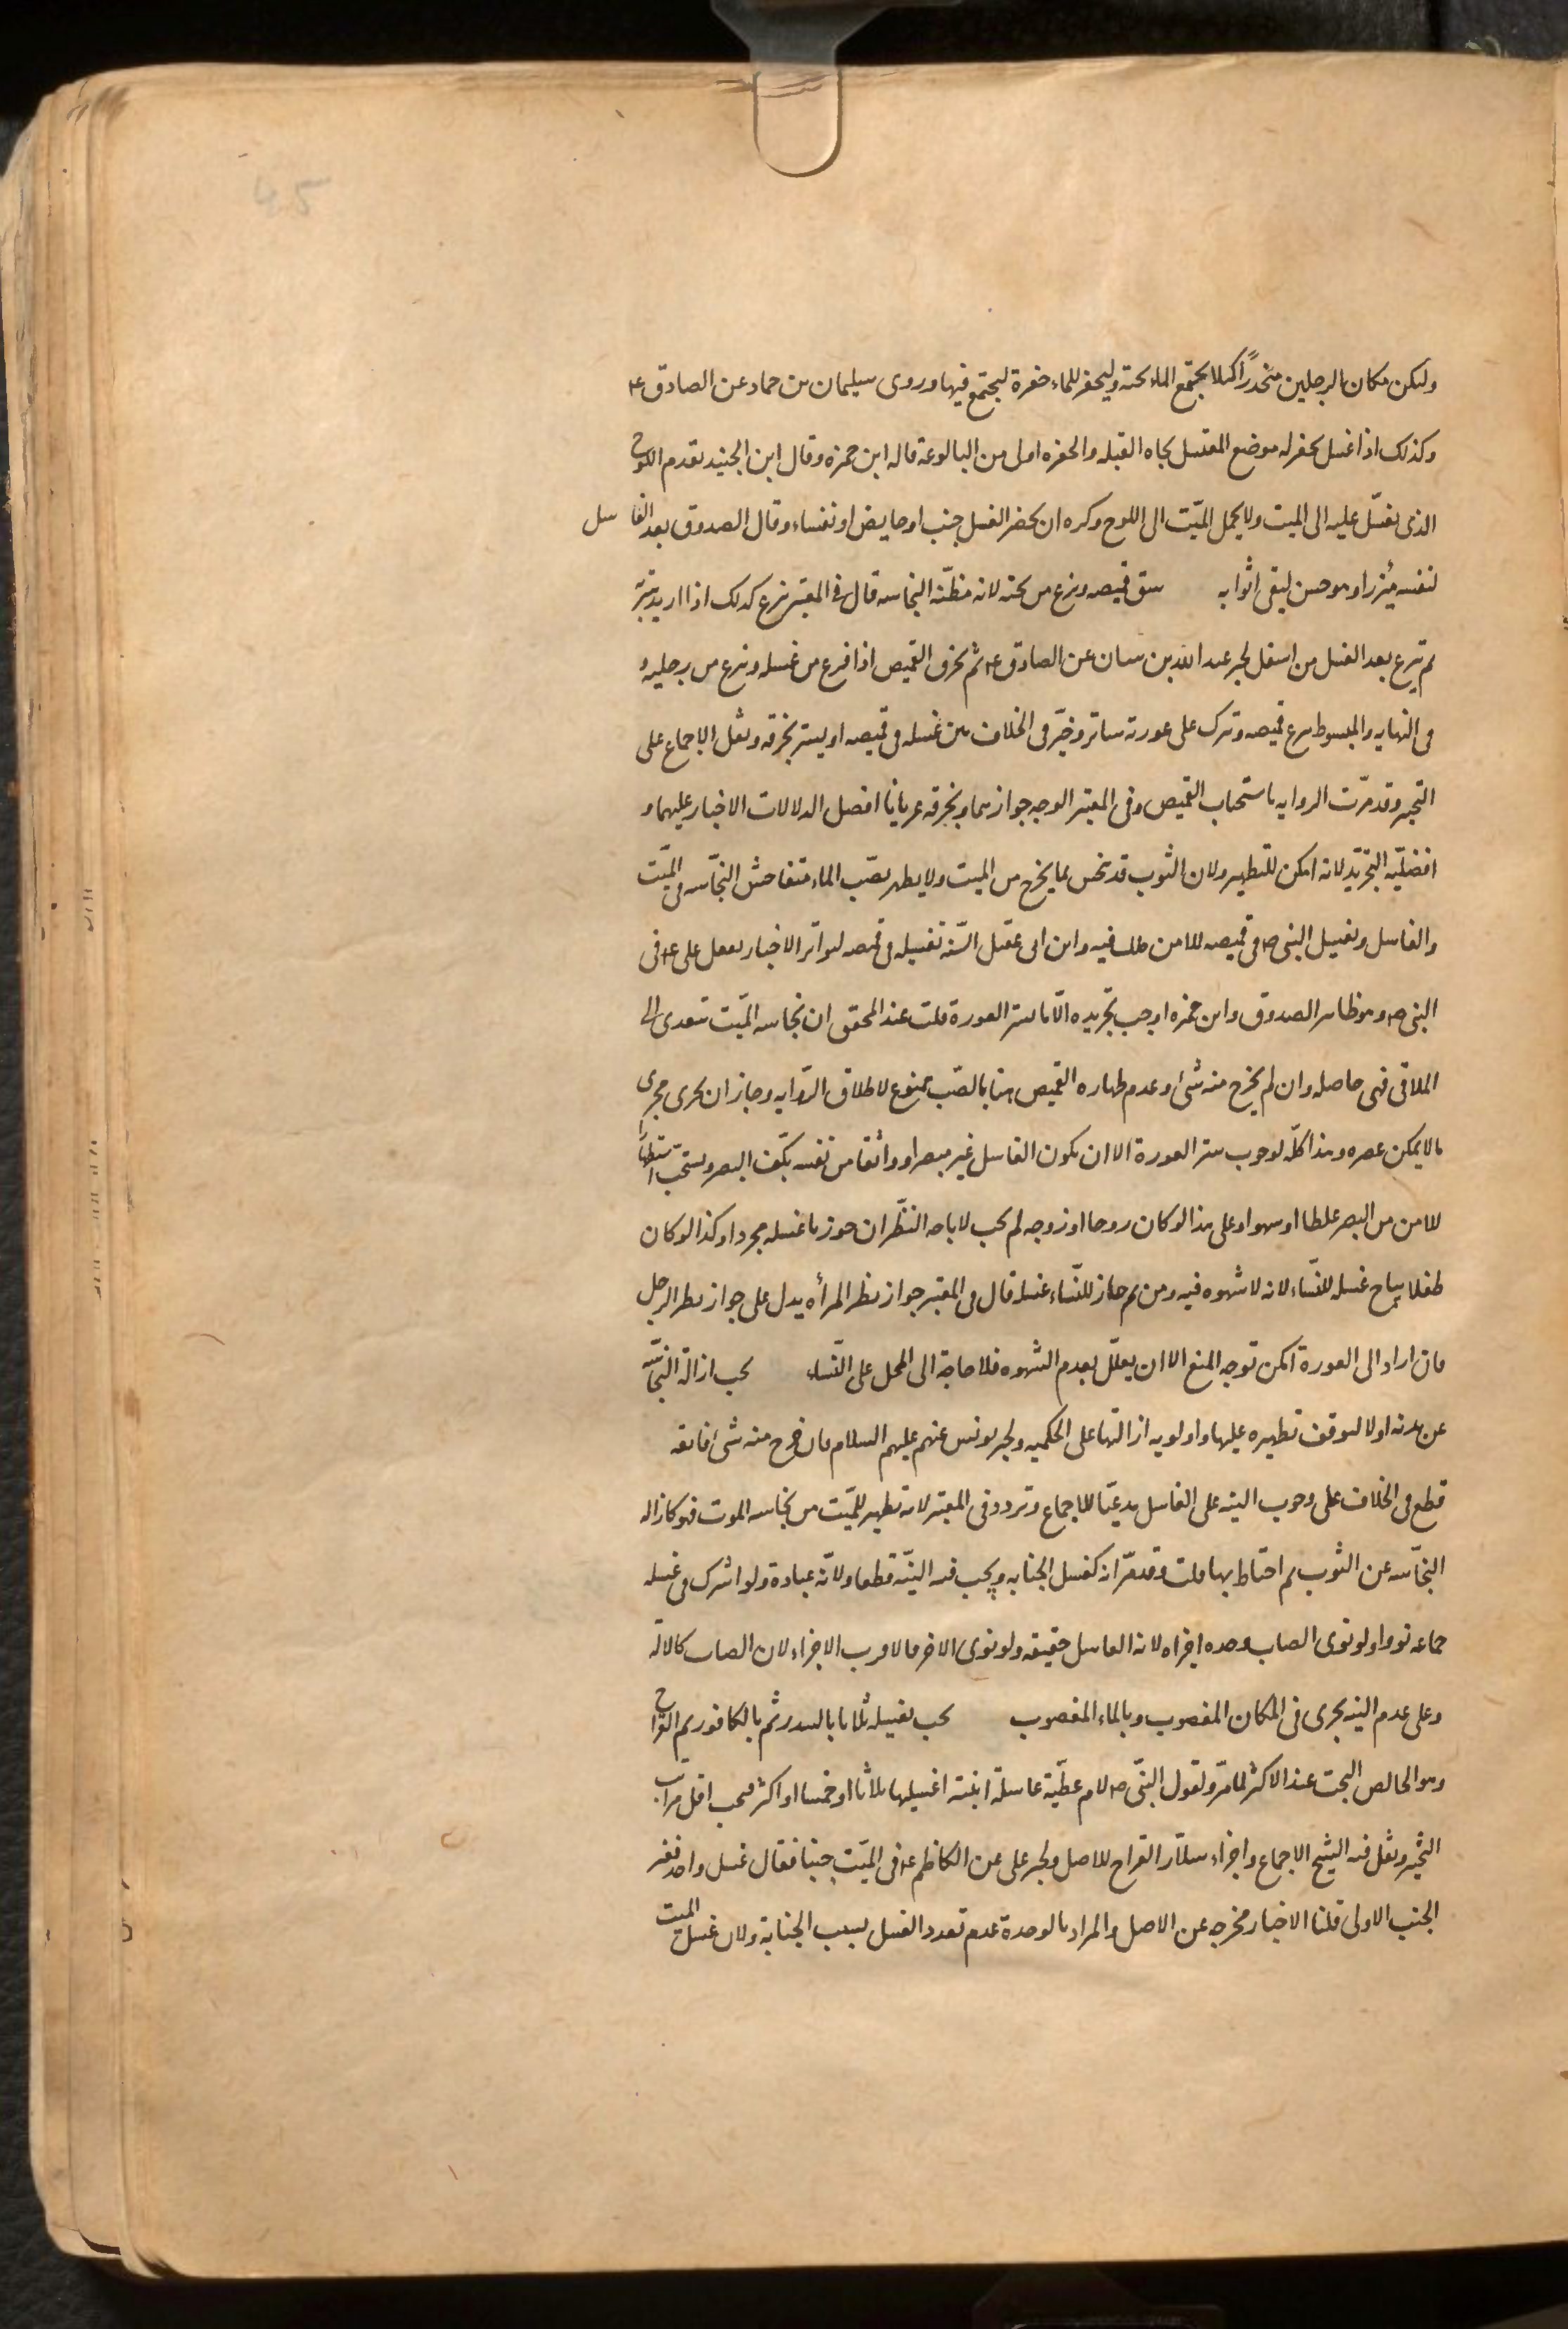 وليكن مكان الرجلين منحدرًا كيلا يجتمع الماء تحته وليحفر للماء حفرة ليجتمع فيها وروى سليمان بن حماد عن الصادق ع
وكذلك اذا غسل يحفر له موضع المغتسل تجاه القبله والحفره اولى من البالوعة قاله ابن حمزه وقال ابن الجنيد يقدم اللوح
الذى يغسّل عليه الى الميت ولا يحمل الميّت الى اللوح وكره ان يحضر الغسل جنب او حايض او نفساء وقال الصدوق يعد الغاسل
لنفسه مئزرا وهو حسن ليقى اثوابه شق قميصه ونزع من تحته لانه مظنّة النجاسه قال فى المعتبر نزع كذلك اذا اريد ستره
ثم ينزع بعد الغسل من اسفل لخبر عبد الله بن سنان عن الصادق ع ثم يخرق القميص اذا فرغ من غسله ونزع من رجليه و
فى النهايه والمبسوط نزع قميصه وترك على عورته ساتر وخيّر فى الخلاف بين غسله فى قميصه او يستر بخرقه ونقل الاجماع على
التخيير وقد مرّت الروايه باستحباب القميص وفى المعتبر الوجه جوازهما وبخرقه عريانا افضل الدلالات الاخبار عليهما و
افضليّة التجريد لانه امكن للتطهير ولان الثوب قد ينجس بما يخرج من الميت ولا يطهر بصبّ الماء فتتفاحش النجاسه فى الميّت
والغاسل وتغسيل النبى ص فى قميصه للامن من ذلك فيه وابن ابى عقيل السّنة تغسيله فى قميصه لتواتر الاخبار بفعل على ع فى
النبى ص وهو ظاهر الصدوق وابن حمزه اوجب تجريده الّا ما يستر العورة قلت عند المحقق ان نجاسه الميّت تتعدى الى
الملاقى فهى حاصله وان لم يخرج منه شىء وعدم طهاره القميص هنا بالصّب ممنوع لاطلاق الرّوايه وجاز ان يجرى مجرى
ما لا يمكن عصره وهذا كلّه لوجوب ستر العورة الا ان يكون الغاسل غير مبصر او واثقا من نفسه بكف البصر ويستحب استظهارا
للامن من البصر غلطا او سهوا وعلى هذا لو كان زوجا او زوجه لم يجب لاباحه النظر ان جوزنا غسله مجردا وكذا لو كان
طفلا يباح غسله للنساء لانه لا شهوه فيه ومن ثم جاز للنساء غسله قال فى المعتبر جواز نظر المرأه يدل على جواز نظر الرجل
فان اراد الى العورة امكن توجه المنع الا ان يعلّل بعدم الشهوه فلا حاجة الى الحمل على النساء يجب ازالة النجاسه
عن بدنه اولا لتوقف تطهيره عليها واولويه ازالتها على الحكميه ولخبر يونس عنهم عليهم السلام فان خرج منه شىء فانقه
قطع فى الخلاف على وجوب النيه على الغاسل مدعيّا للاجماع وتردد فى المعتبر لانه تطهير للميّت من نجاسه الموت فهو كازاله
النجاسه عن الثوب ثم احتاط بها قلت وقد مرّ انه كغسل الجنابه ويجب فيه النيّة قطعا ولانّه عبادة ولو اشترك فى غسله
جماعه نووا ولو نوى الصاب وحده اجزاه لانه الغاسل حقيقه ولو نوى الاخر فالاقرب الاجزاء لان الصاب كالالة
وعلى عدم النيه يجزى فى المكان المغصوب وبالماء المغصوب يجب تغسيله ثلاثا بالسدر ثم بالكافور ثم القراح
وهو الخالص البحت عند الاكثر لما مرّ ولقول النبّى ص لام عطيّة غاسلة ابنته اغسليها ثلاثا او خمسا او اكثر فيجب اقل مراتب
التخيير ونقل فيه الشيخ الاجماع واجزاء سلّار القراح للاصل ولخبر على عن الكاظم ع فى الميّت جنبا فقال غسل واحد فغير
الجنب الاولى قلنا الاخبار مخرجه عن الاصل والمراد بالوحدة عدم تعدد الغسل بسبب الجنابة ولان غسل الميت